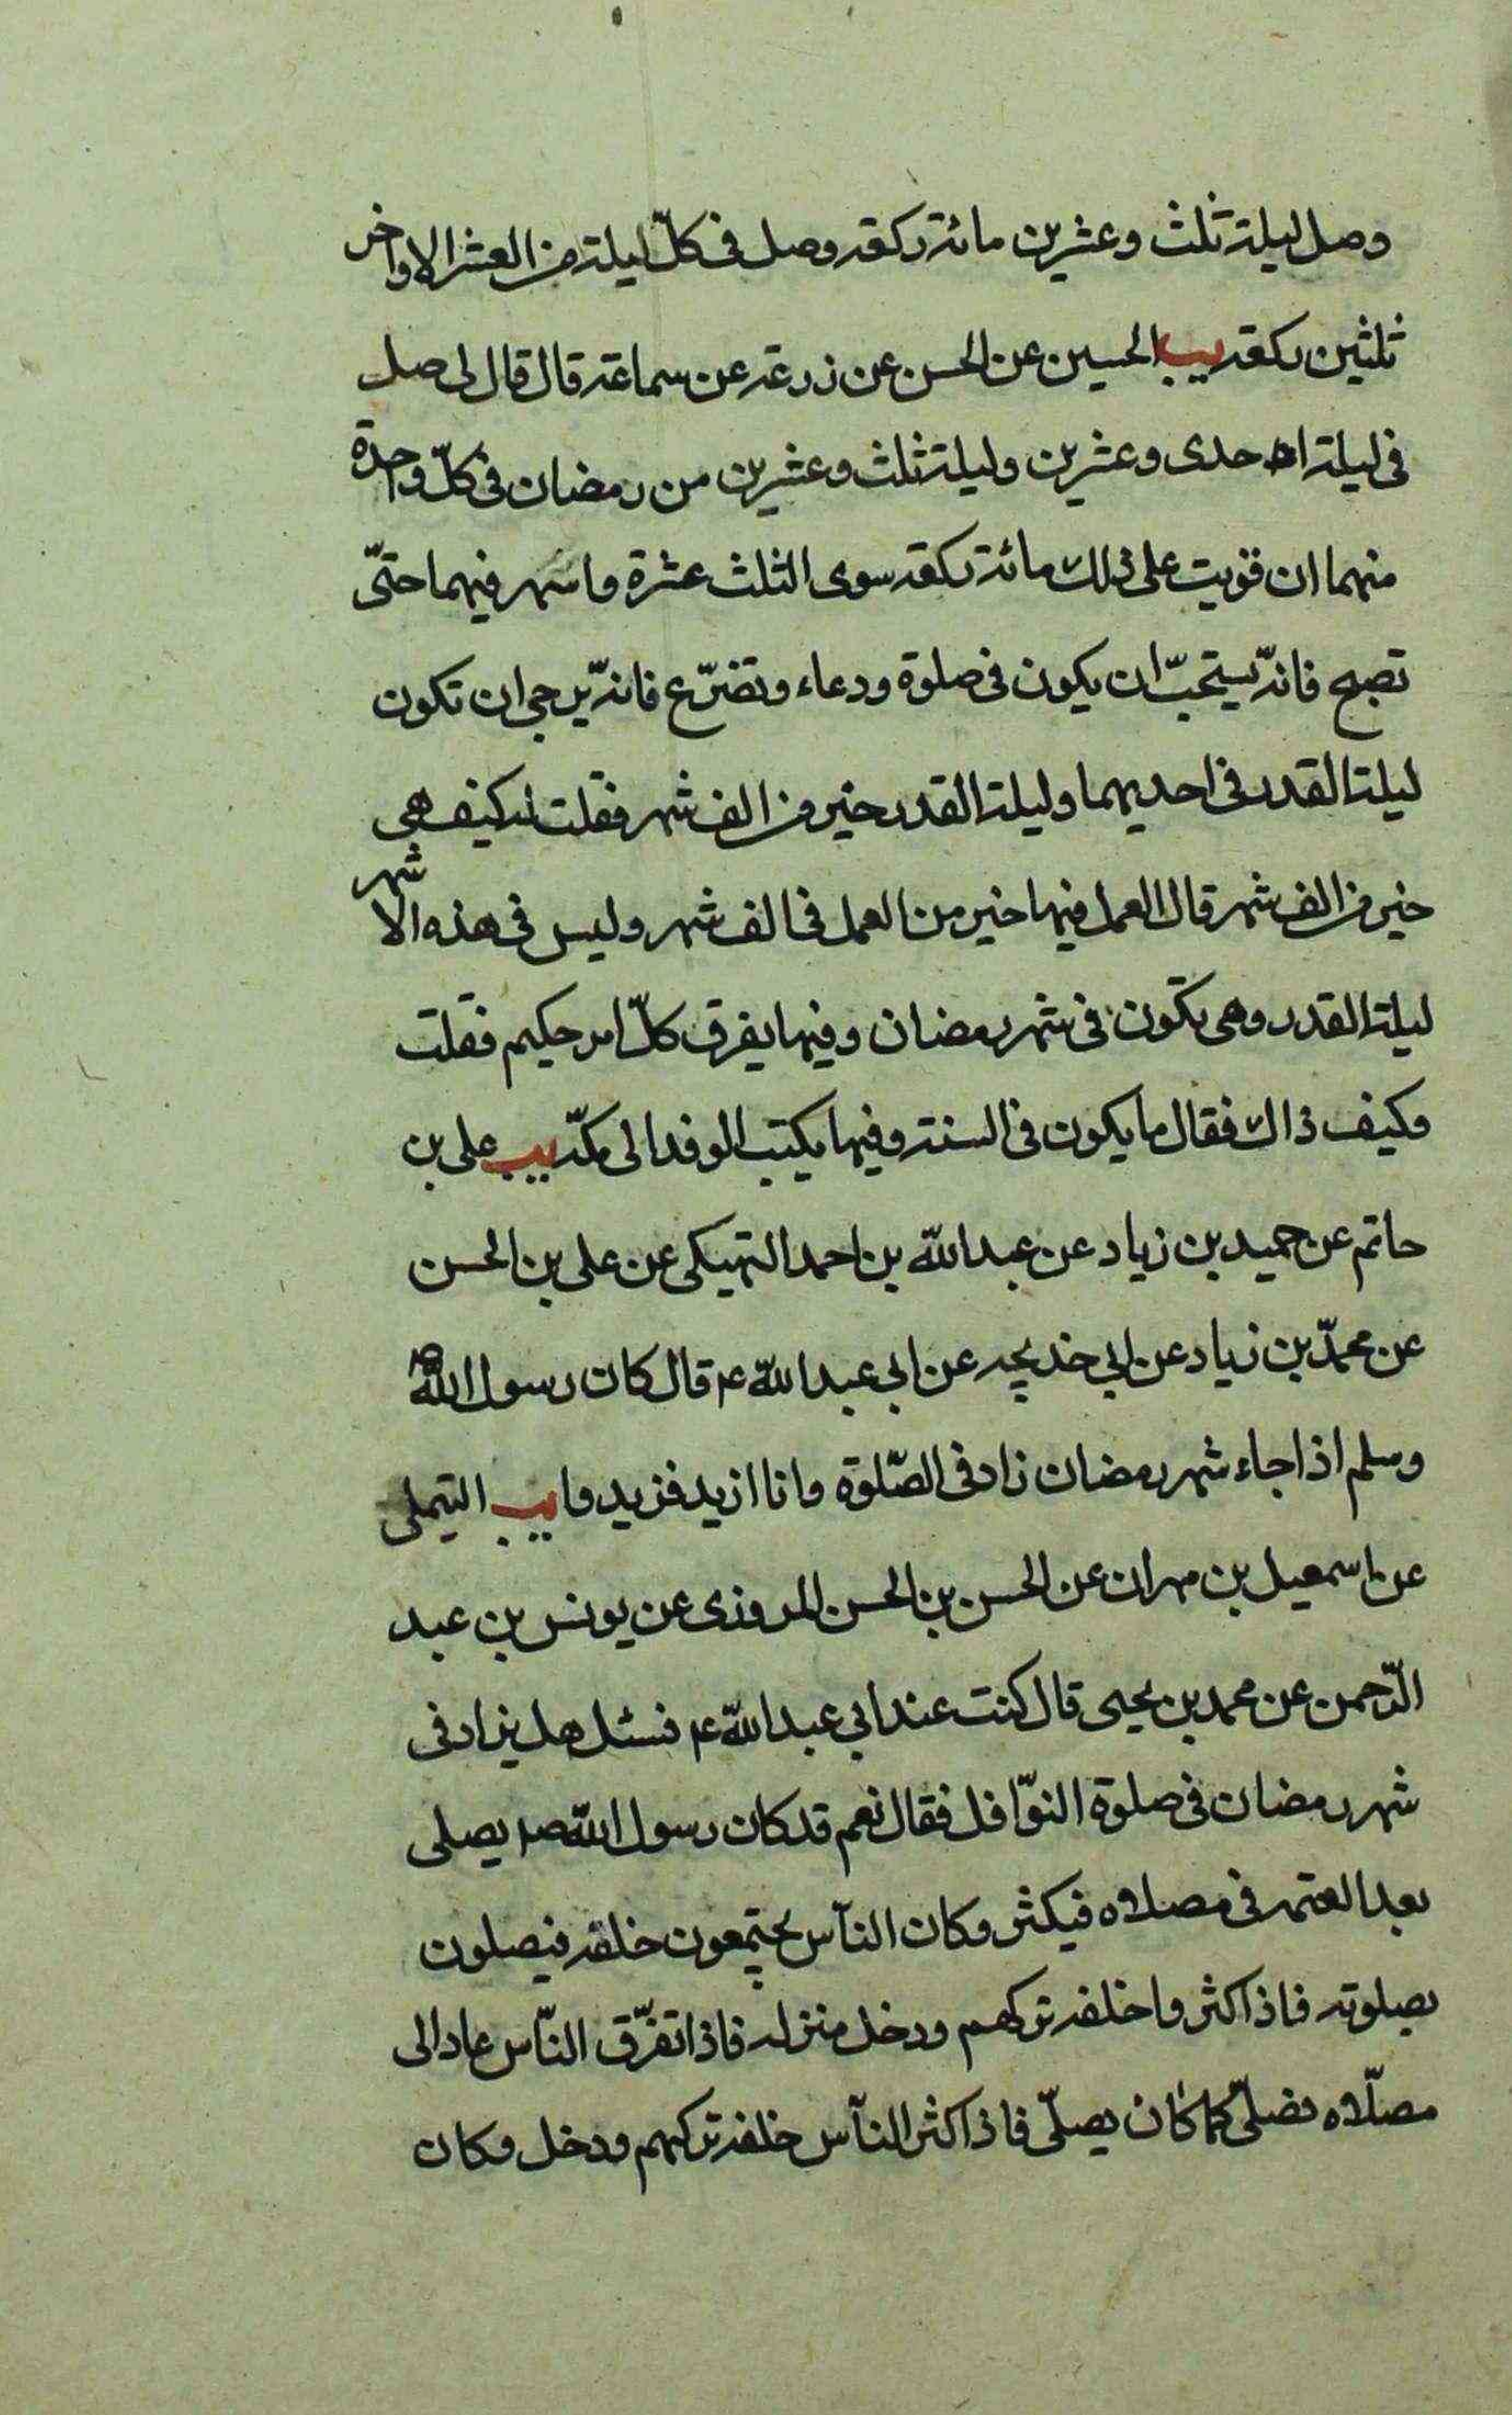 وصل ليلة ثلث وعشرين مائة ركعة وصل فى كلّ ليلة من العشر الاواخر
ثلثين ركعة يب الحسين عن الحسن عن زرعة عن سماعة قال قال لى صل
فى ليلة احدى وعشرين وليلة ثلث وعشرين من رمضان فى كلّ واحدة
منهما ان قويت على ذلك مائة ركعة سوى الثلث عشرة واسهر فيهما حتّى
تصبح فانّه يستحبّ ان يكون فى صلوة ودعاء وتضرّع فانّه يرجى ان تكون
ليلة القدر فى احديهما وليلة القدر خير من الف شهر فقلت له كيف هى
خير من الف شهر قال العمل فيها خير من العمل فى الف شهر وليس فى هذه الاشهر
ليلة القدر وهى تكون فى شهر رمضان وفيها يفرق كلّ امر حكيم فقلت
وكيف ذاك فقال ما يكون فى السنة وفيها يكتب الوفد الى مكّة يب على بن
حاتم عن حميد بن زياد عن عبد اللّه بن احمد النهيكى عن على بن الحسن
عن محمّد بن زياد عن ابى خديجه عن ابى عبد اللّه ع قال كان رسول اللّه ص
وسلم اذا جاء شهر رمضان زاد فى الصّلوة وانا ازيد فزيدوا يب التيملى
عن اسمعيل بن مهران عن الحسن بن الحسن المروزى عن يونس بن عبد
الرّحمن عن محمد بن يحيى قال كنت عند ابى عبد اللّه ع فسئل هل يزاد فى
شهر رمضان فى صلوة النوّافل فقال نعم قد كان رسول اللّه ص يصلى
بعد العتمة فى مصلاه فيكثر وكان النّاس يجتمعون خلفه فيصلون
بصلوته فاذا كثروا خلفه تركهم ودخل منزله فاذا تفرّق النّاس عاد الى
مصلّاه فصلّى كما كان يصلّى فاذا كثر النّاس خلفه تركهم ودخل وكان